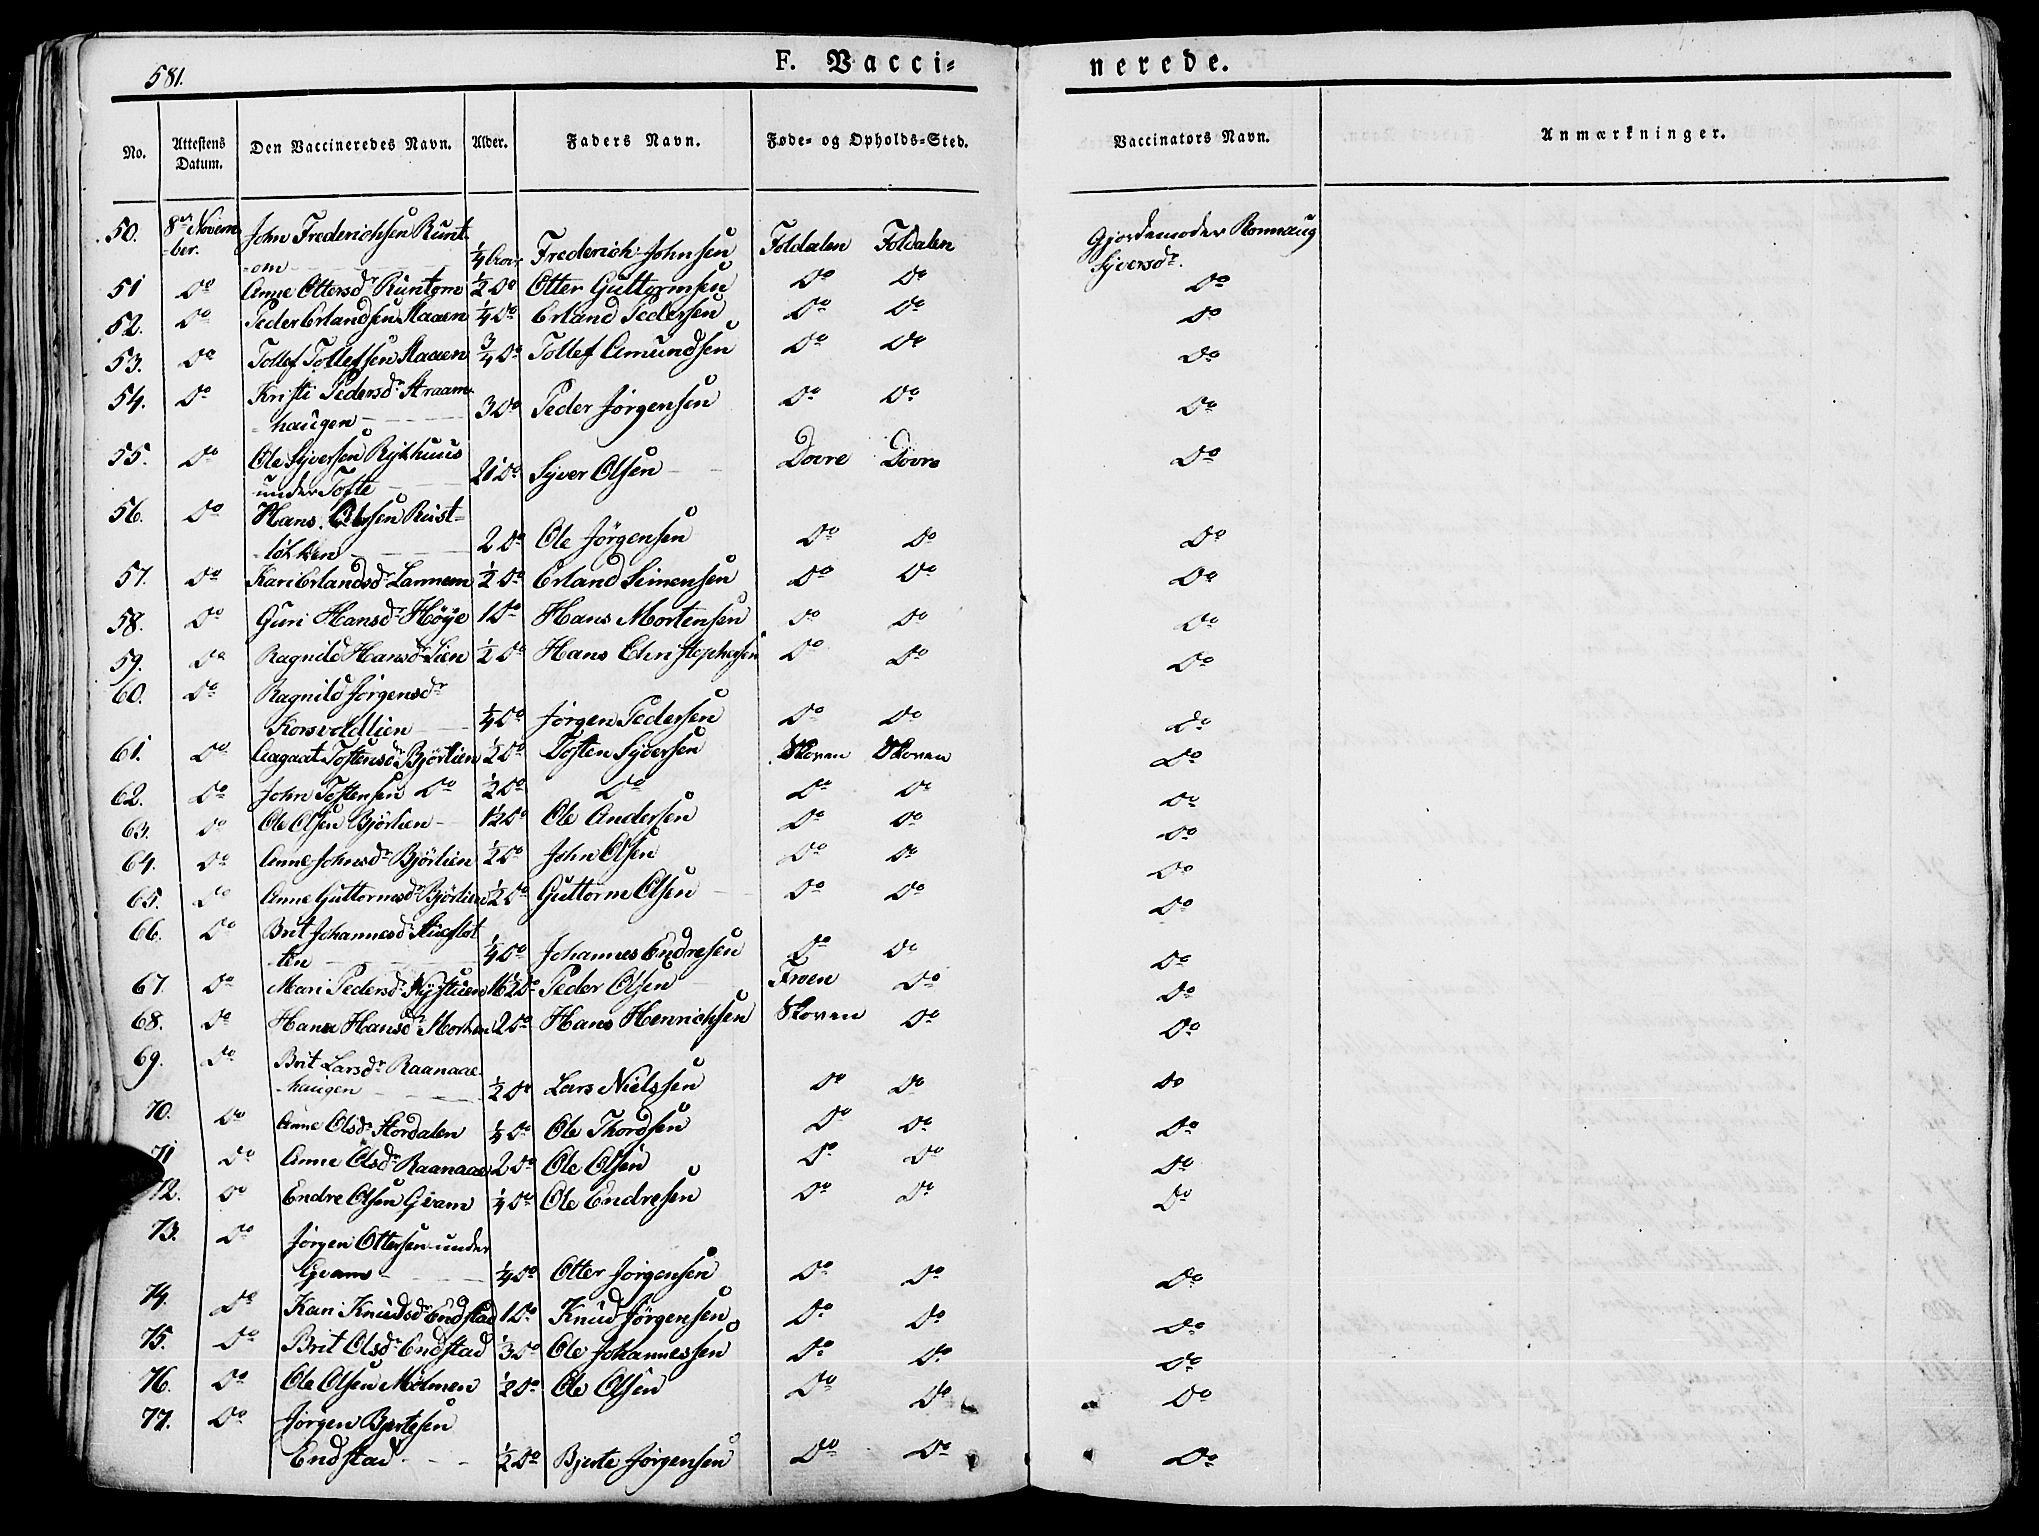 581.
F. Vacci-
nerede.
No. Attestens Datum. Den Vaccineredes Navn. Alder. Faders Navn. Føde- og Opholds-Sted. Vaccinators Navn. Anmærkninger.
50. 8de Novem- John Frederichsen Runt- Gjordemoder Romnaug
-ber. -om ¼ Frederich Johnsen Foldalen Foldalen Syversdr.
51 Do Anne Ottersdr Runtom ½ Do Otter Guttormsen Do Do Do
52. Do Peder Erlandsen Staaen ¼ Do Erland Pedersen Do Do Do
53. Do Tollef Tollefsen Staaen ¾ Do Tollef Amundsen Do Do Do
54. Do Kristi Pedersdr Straam-
-haugen 3 Do Peder Jørgensen Do Do Do
55. Do Ole Syversen Rykhuus
under Tofte 21 Do Syver Olsen Dovre Dovre Do
56. Do Hans Olsen Rust-
-løkken 2 Do Ole Jørgensen Do Do Do
57. Do Kari Erlandsdr Lannem ½ Do Erland Simensen Do Do Do
58. Do Guri Hansdr Høye 1 Do Hans Mortensen Do Do Do
59. Do Ragnild Hansdr Lien ½ Do Hans Christophersen Do Do Do
60. Do Ragnild Jørgensdr
Korsvoldlien ¼ Do Jørgen Pedersen Do Do Do
61. Do Aagaat Tostensdr Bjørlien ½ Do Tosten Syversen Skoven Skoven Do
62. Do John Tostensen Do ½ Do Do Do Do Do
63. Do Ole Olsen Bjørlien 1½ Do Ole Andersen Do Do Do
64. Do Anne Johnsdr Bjørlien ½ Do John Olsen Do Do Do
65. Do Anne Guttormsdr Bjørlien ½ Do Guttorm Olsen Do Do Do
66. Do Brit Johannesdr Stueflot-
ten ¼ Do Johannes Endresen Do Do Do
67. Do Mari Pedersdr Nystuen 16½ Do Peder Olsen Froen Do Do
68. Do Hansdr 2 Do Hans Henrichsen Skoven Do Do
69. Do Brit Larsdr Raanaae-
-haugen ½ Do Lars Nielssen Do Do Do
70. Do Anne Olsdr Stordalen ¼ Do Ole Thordsen Do Do Do
71 Do Anne Olsdr Raanaae 2 Do Ole Olsen Do Do Do
72. Do Endre Olsen Qvam ¼ Do Ole Endresen Do Do Do
73. Do Jørgen Ottersen under
Qvam ¼ Do Otter Jørgensen Do Do Do
74. Do Kari Knudsdr Endstad 1 Do Knud Jørgensen Do Do Do
75. Do Brit Olsdr Endstad ⅓ Do Ole Johannessen Do Do Do
76. Do Ole Olsen Mølmen ½ Do Ole Olsen Do Do Do
77. Do Jørgen Bjertesen
Endstad ½ Do Bjerte Jørgensen Do Do Do